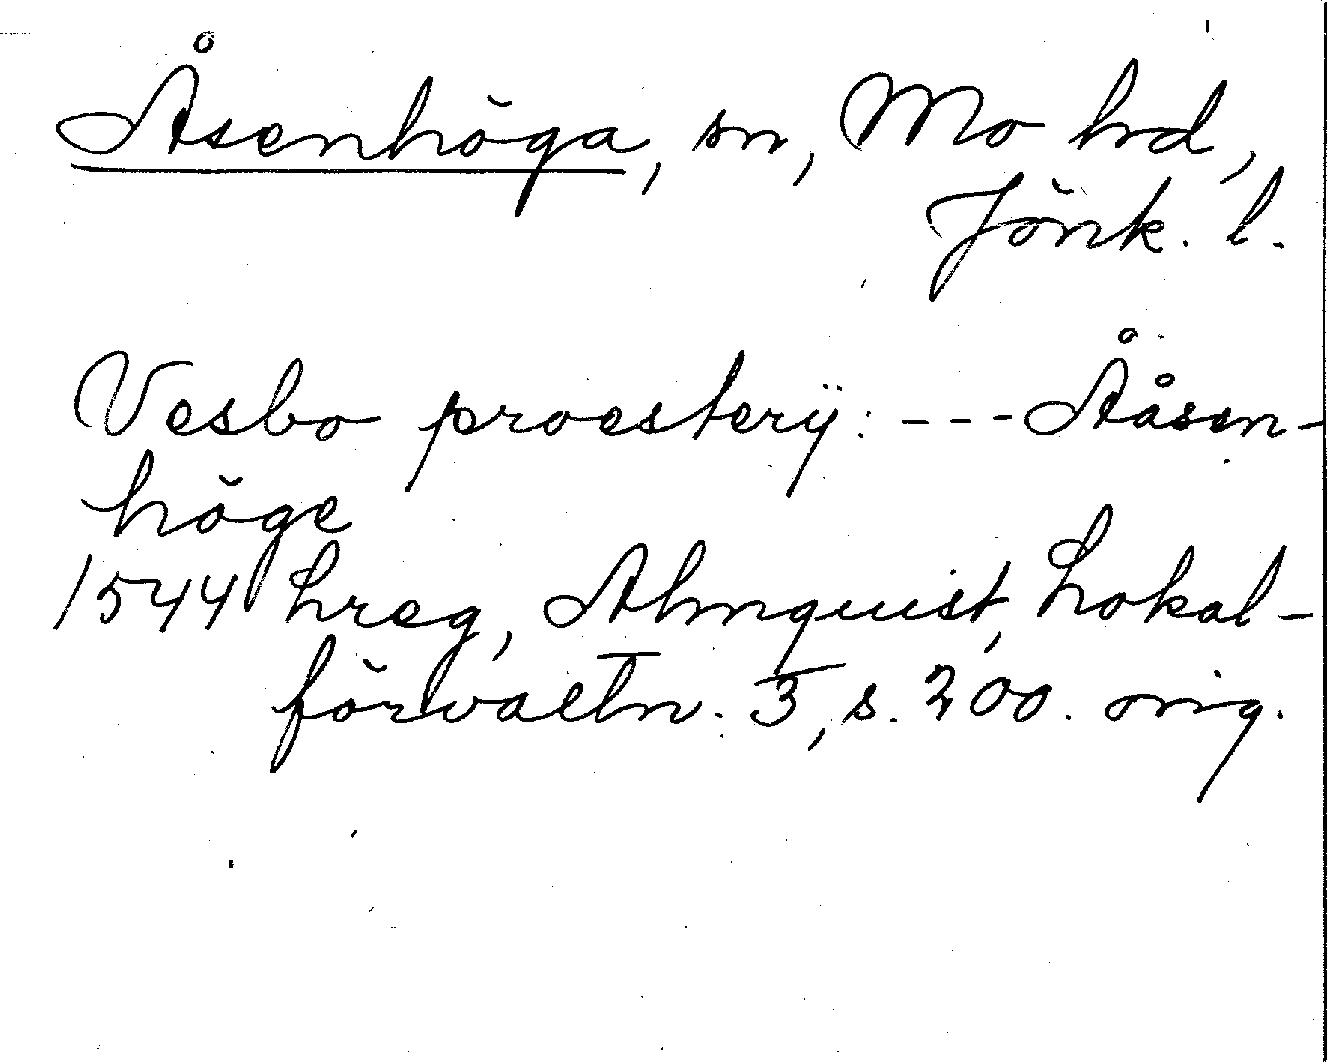 Åsenhöga, sn, Mo hd,
Jönk. l.
Vesbo proesterÿ: --- Ååsen-
höge
1544 hreg, Almquist, Lokal-
förvaltn. 3, s. 200. orig.